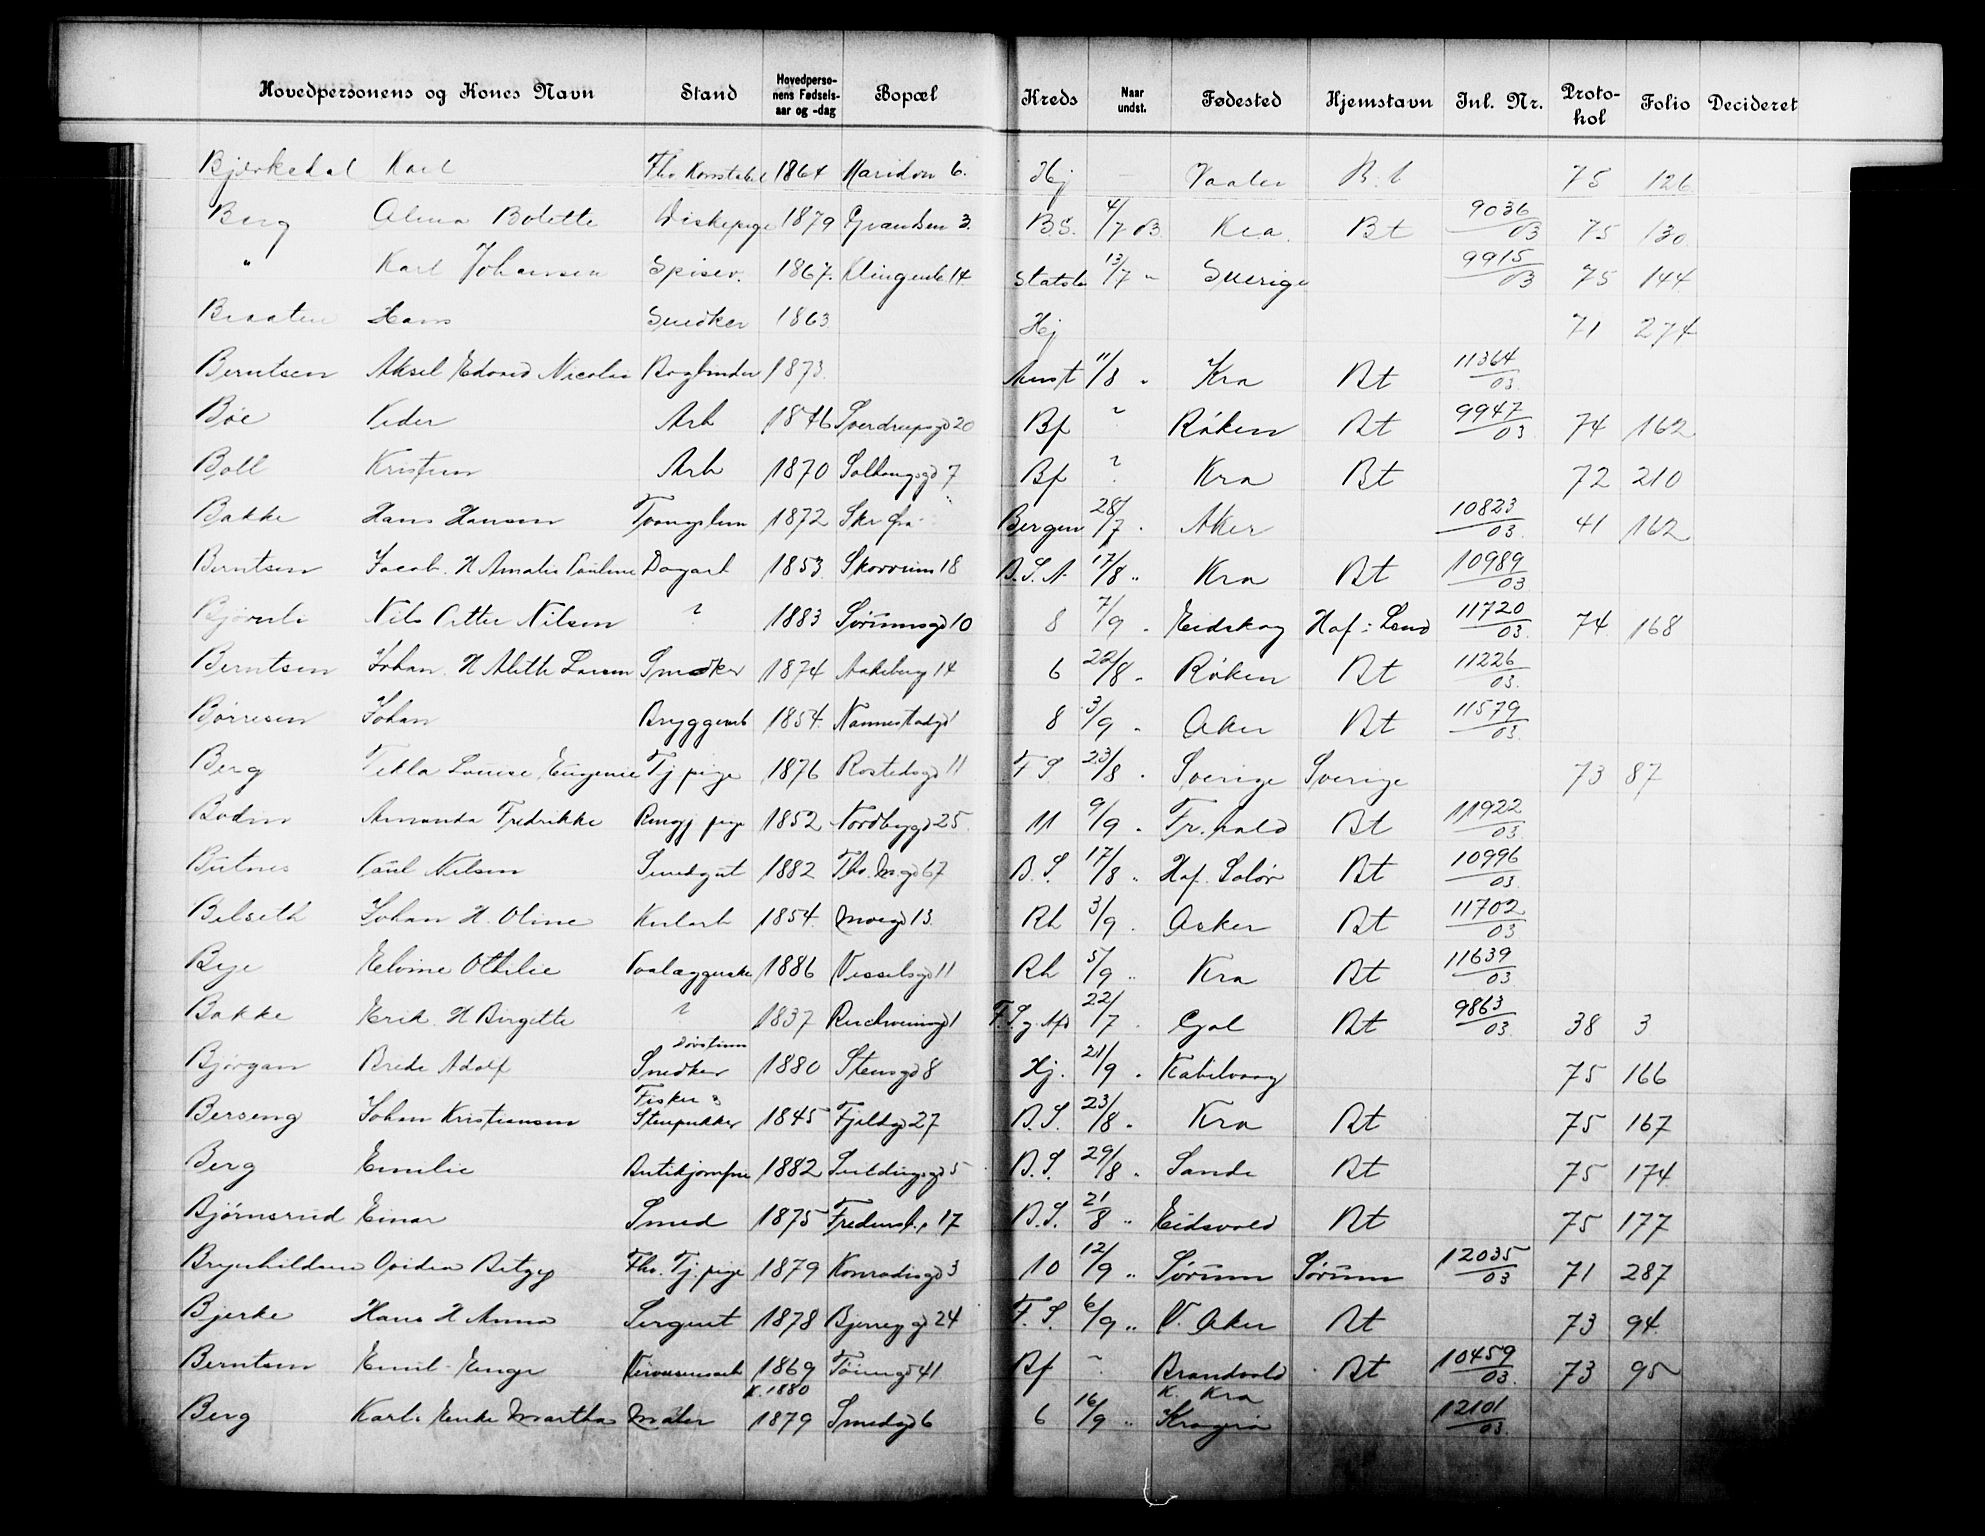 Hovedpersonens og Kones Navn Stand Hovedpersonens Fødselsaar og -dag Bopæl Kreds Naar undst. Fødested Hjemstavn Inl. Nr. Protokol Folio Decideret
Bjerkedal Karl Fhv Konstabel 1864 Maridvn 6. Hj Vaaler B.t 75 126
Berg Alma Bolette Diskepige 1879 Grændsen 3. B.S. 4/7 03 Kra. Bt 9036/03 75 130
" Karl Johansen Spisev. 1867. Klingenb 14 13/7 " Sverige 9915/03 75 144
Braaten Hans Snedker 1863 Hj 71 274
Berntsen Aksel Edvard Nicolai Bogbinder 1873. 11/8 " Kra Bt 11364/03.
Bøe Peder Arb 1846 Sverdrupsgd 20 Bf ? Røken Bt 9947/03 74 162
Boll Kristian Arb 1870 7 Bf ? Kra Bt 72 210
Bakke Hans Hansen Tvangslem 1872 Bergen 28/7 " Aker 10823/03. 41 162
Berntsen Jacob. H Amalie Pauline Dagarb 1853 18 B.S.A. 17/8 " Kra Bt 10989/03
Nils Petter Nilsen ? 1883 Sørumsgd 10 8 7/9 " Eidskog Hof i Land 11720/03. 74 168
Berntsen Johan. H Alette Larsen Snedker 1874 Aakeberg 14 6 22/8 " Røken Bt 11226/03.
Børresen Johan Bryggearb 1854. Nannestadgd 1 8 3/9 " Aker Bt 11579/03.
Berg Tekla Louise Eugenie Tj pige 1876 Rostedsgd 11 F S 23/8 " Sverige Sverige 73 87
Bodin Amanda Fredrikke Rengj pige 1852 Nordbygd 25. 11 9/9 " Fr.hald Bt 11922/03.
Butnes Paul Nilsen Smedgut 1882 Thv. Mgd 67 B.S. 17/8 " Hof. Solør Bt 10996/03.
Bilseth Johan H. Oline Kularb 1854. Moegd 13. Rh 3/9 " Asker Bt 11702/03
Bye Elvine Othilie 1886 Vesselsgd 11 Rh 5/9 " Kra Bt 11639/03.
Bakke Erik. H Birgitte ? 1837 1 F.S. 22/7 " Gol Bt 9863/03. 38 3
Bjørgan Brede Adolf Snedker 1880 Stensgd 8 Hj. 21/9 " Kabelvaag 75 166
Berseng Johan Kristiansen Fisker & Stenpukker 1845 Fjeldgd 27 B.S. 23/8 " Kra Bt 75 167
Berg Emilie Butikjomfru 1882 5 B.S. 29/8 " Sande Bt 75 174
Bjørnsrud Einar Smed 1875 Fredensb. 17 B.S. 21/8 " Eidsvold Bt 75 177
Brynhildsen Ovidia Betzy Fhv. Tj. pige 1879 Konradisgd 3 10 12/9 " Sørum Sørum 12035/03 71 287
Bjerke Hans H Anna Sergent 1878 Bjerregd 24 F.S. 6/9 " V. Aker Bt 73 94.
Berntsen Emil - Enger 1869 Tøiengd 41 Bf ? Brandvold Bt 10459/03. 73 95
K. 1880 K. Kra
Berg Karl. Enke Martha Maler 1879 Smedgd 6 6 16/9 " Kragerø 12101/03.